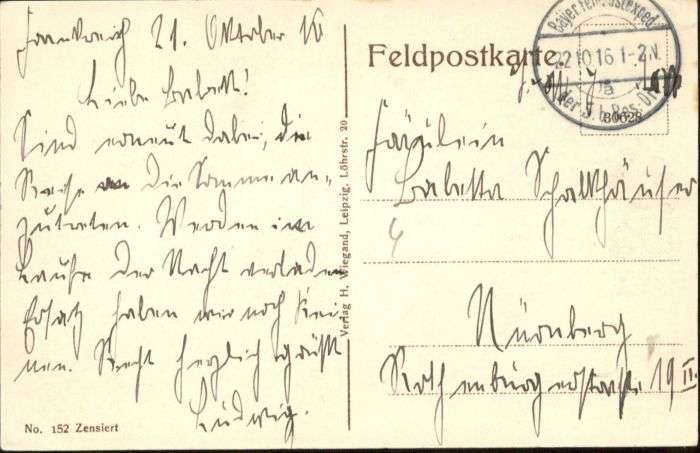 Frankreich 21. Oktober 16
Liebe Babett!
Sind erneut dabei, die
Reise an die Somme an-
zutreten. Werden im
Laufe der Nacht verladen
Ersatz haben wir noch kei
nen. Recht herzlich grüßt
Ludwig.
No. 152 Zensiert
Verlag H. Wiegand, Leipzig, Löhrstr. 20
Feldpostkarte
22.10.16 1-2 N.
a
der 5. b. Res.-Div.
B0628
Fräulein
Babetta Schalkhäuser
Nürnberg
Rothenburgerstraße 19 II.